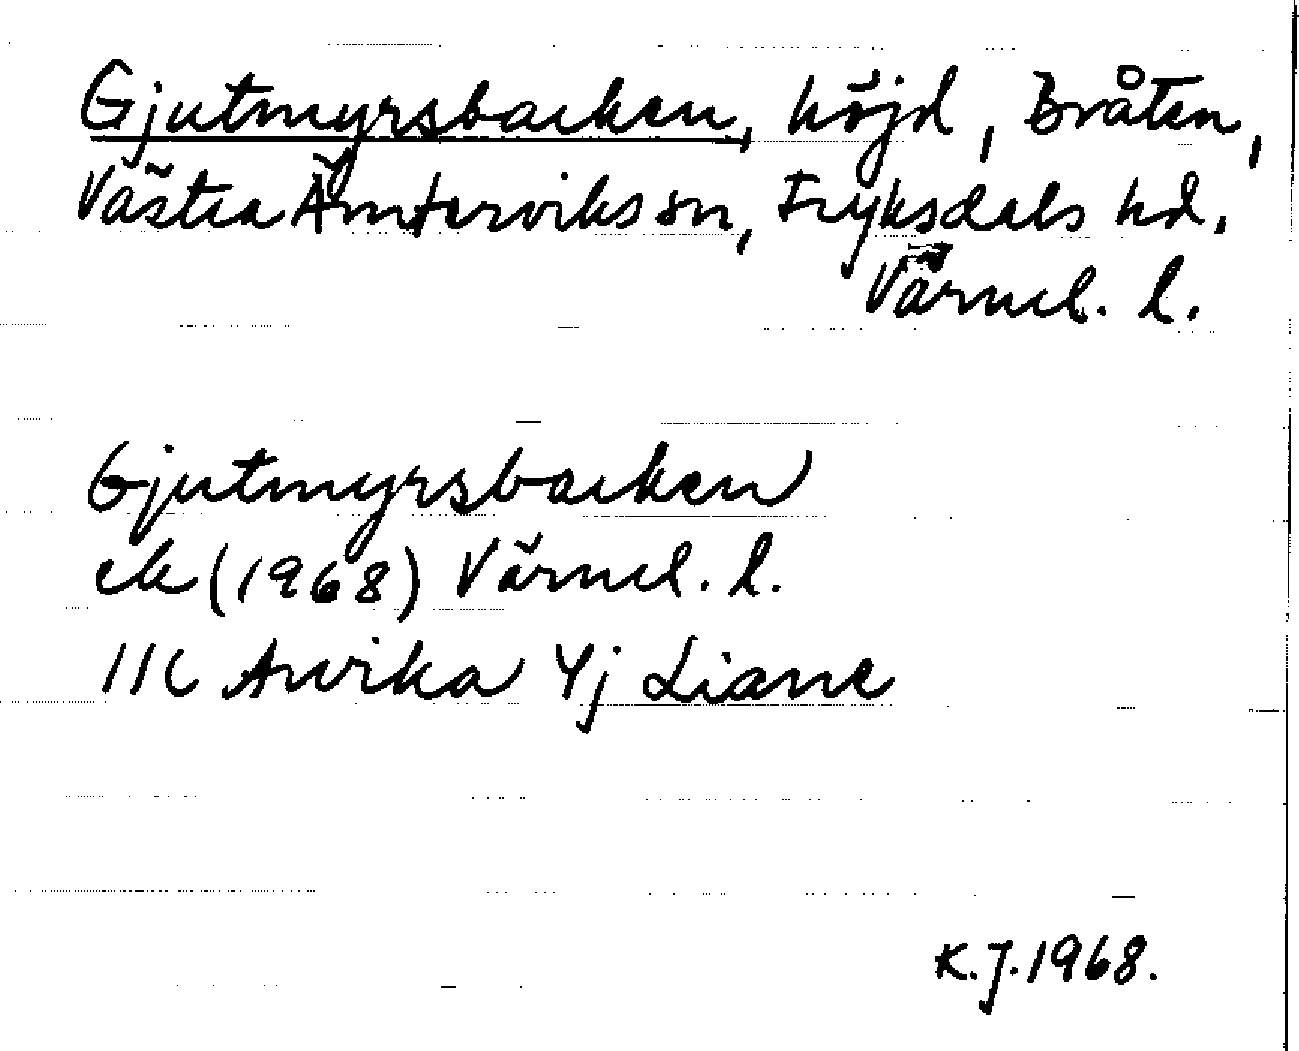 Gjutmyrsbacken, höjd, Bråten,
Västra Ämterviks sn, Fryksdals hd.
Värml. l.
Gjutmyrsbacken
ek (1968) Värml. l.
11C Arvika 4j Liane
K.J. 1968.